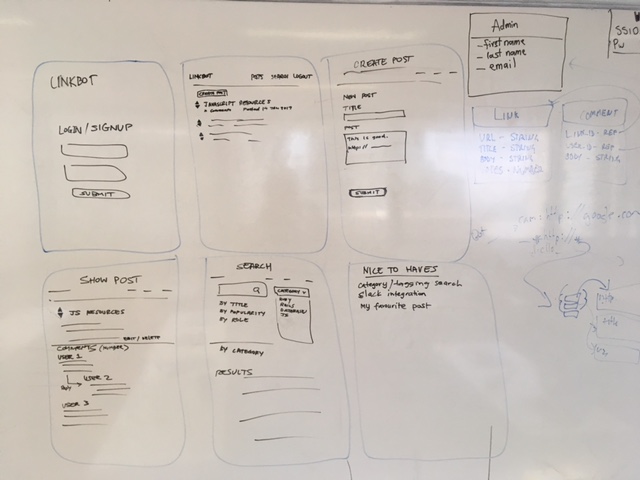 LINKBOT
LOGIN/SIGNUP
SUBMIT
LINKBOT POSTS SEARCH LOGOUT
CREATE POST
JAVASCRIPT RESOURCES
CREATE POST
NEW POST
TITLE
POST
THIS IS GOOD.
SUBMIT
Admin
— first name
— last name
— email
SSID
Pw
LINK
URL - STRING
TITLE - STRING
BODY - STRING
COMMENT
BODY - STRING
SHOW POST
JS RESOURCES
EDIT / DELETE
COMMENTS (NUMBER)
USER 1
USER 2
USER 3
SEARCH
CATEGORY
BY TITLE
BY POPULARITY
BY ROLE
RUBY
RAILS
DATABASE
JS
BY CATEGORY
RESULTS
NICE TO HAVES
category/tagging search
slack integration
my favourite post